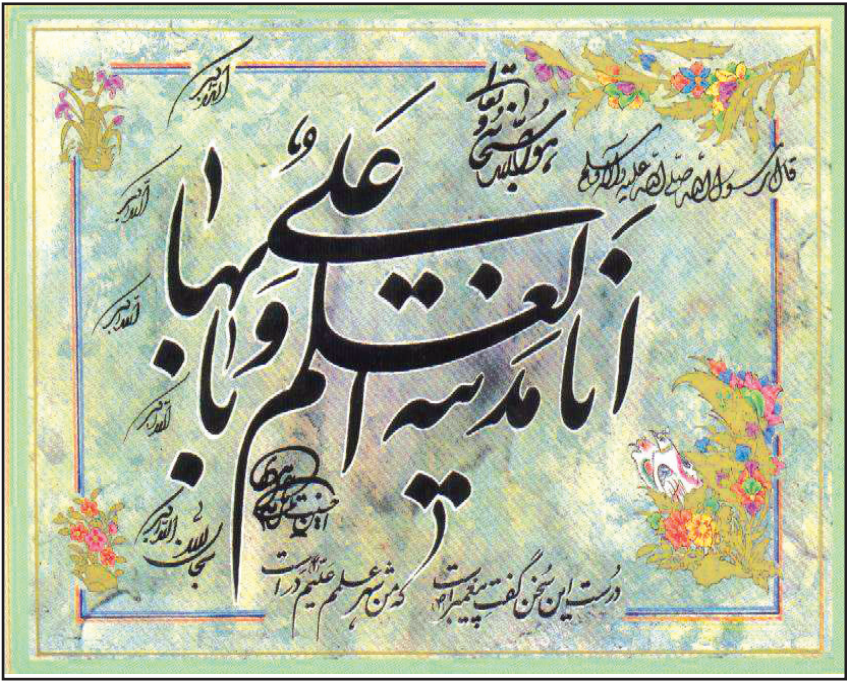 هو الله سبحانه و تعالی
قال رسول الله صلی الله علیه و آله و سلم
انا مدینة العلم و علی بابها
الله اکبر
الله اکبر
الله اکبر
الله اکبر
الله اکبر
سبحان الله
درست این سخن گفت پیغمبر است
که من شهر علمم علیم در است